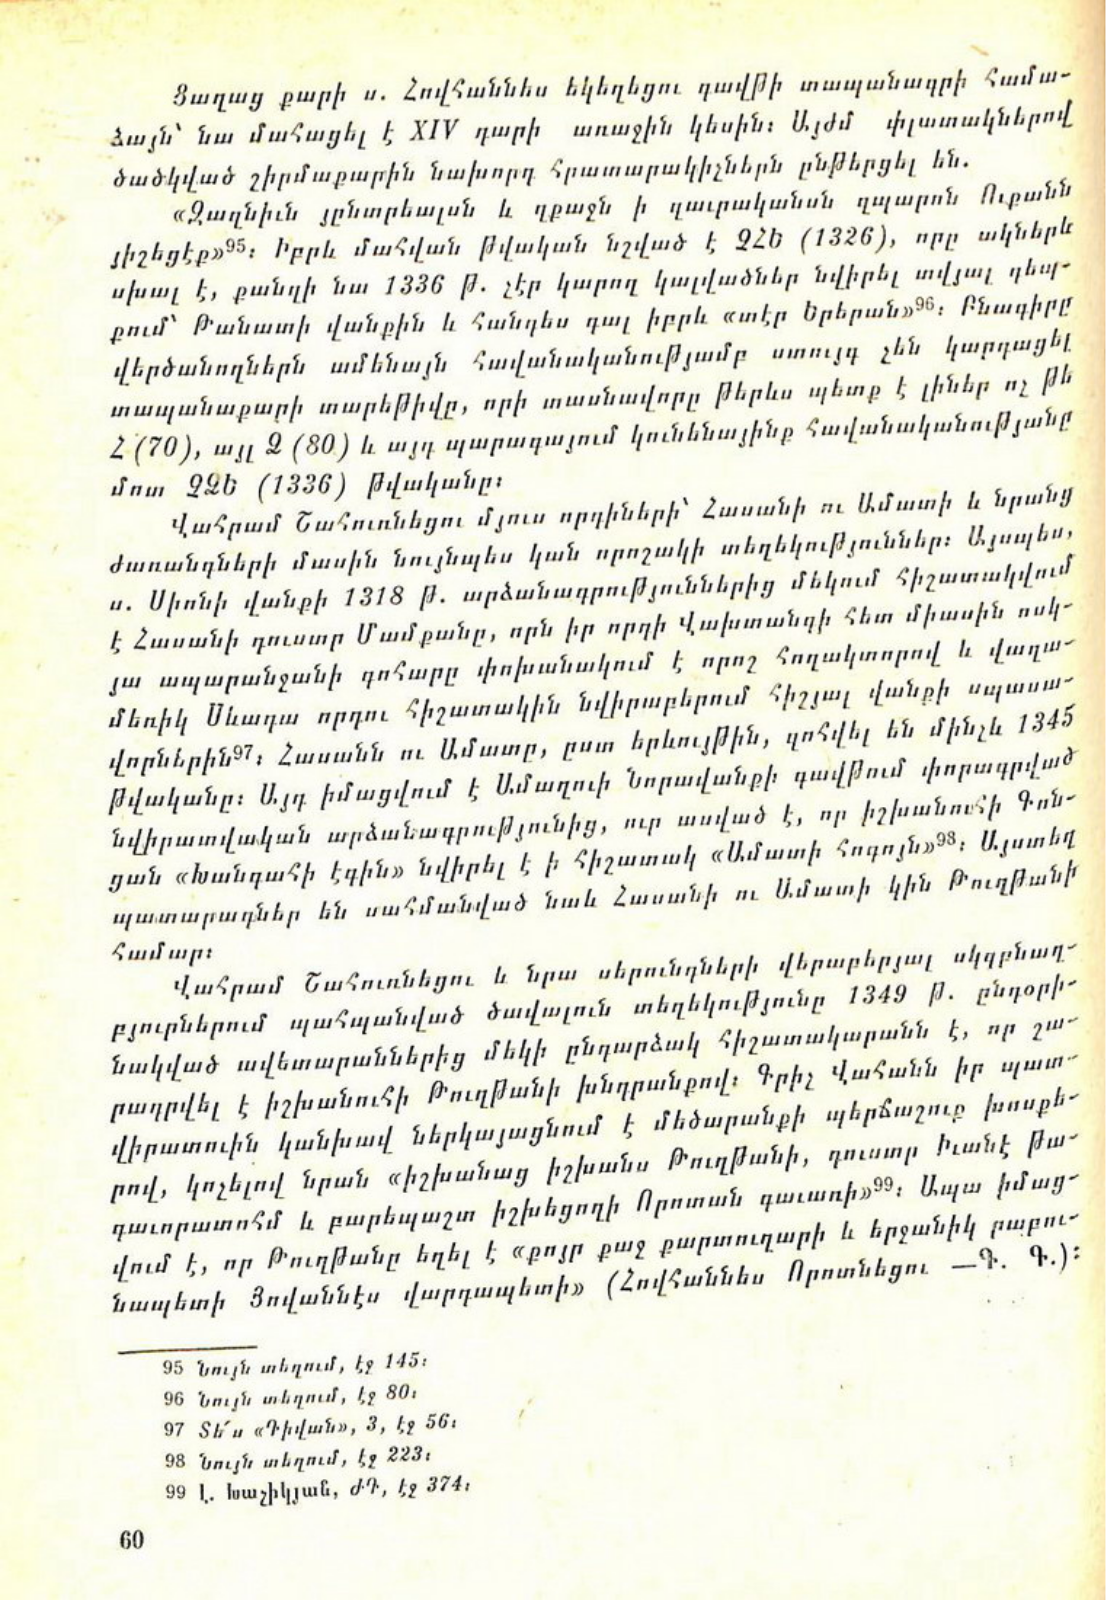 Ցաղաց քարի ս. Հովհաննես եկեղեցու դավթի տապանագրի համա-
ձայն՝ նա մահացել է XIV դարի առաջին կեսին։ Այժմ փլատակներով
ծածկված շիրմաքարին նախորդ հրատարակիչներն ընթերցել են.
«Զաղնիւն յընտրեալսն և զքաջն ի զաւրականսն զպարոն Ուքանն
յիշեցէք»95։ Իբրև մահվան թվական նշված է ՉՀԵ (1326), որը ակներև
սխալ է, քանզի նա 1336 թ. չէր կարող կալվածներ նվիրել տվյալ դեպ-
քում՝ Թանատի վանքին և հանդես գալ իբրև «տէր Երերան»96։ Բնագիրը
վերծանողներն ամենայն հավանականությամբ ստույգ չեն կարդացել
տապանաքարի տարեթիվը, որի տասնավորը թերևս պետք է լիներ ոչ թե
Հ (70), այլ Ձ (80) և այդ պարագայում կունենայինք հավանականությանը
մոտ ՉՁԵ (1336) թվականը։
Վահրամ Շահուռնեցու մյուս որդիների՝ Հասանի ու Ամատի և նրանց
ժառանդների մասին նույնպես կան որոշակի տեղեկություններ։ Այսպես,
ս. Սիոնի վանքի 1318 թ. արձանագրություններից մեկում հիշատակվում
է Հասանի դուստր Մամքանը, որն իր որդի Վախտանգի հետ միասին ոսկ-
յա ապարանջանի գոհարը փոխանակում է որոշ հողակտորով և վաղա-
մեռիկ Սևադա որդու հիշատակին նվիրաբերում հիշյալ վանքի սպասա-
վորներին97։ Հասանն ու Ամատը, ըստ երևույթին, զոհվել են մինչև 1345
թվականը։ Այդ իմացվում է Ամաղուի Նորավանքի գավթում փորագրված
նվիրատվական արձանագրությունից, ուր ասված է, որ իշխանուհի Գոն-
ցան «Խանգահի էգին» նվիրել է ի հիշատակ «Ամատի հոգոյն»98։ Այստեղ
պատարագներ են սահմանված նաև Հասանի ու Ամատի կին Թուղթանի
համար։
Վահրամ Շահուռնեցու և նրա սերունդների վերաբերյալ սկզբնաղ-
բյուրներում պահպանված ծավալուն տեղեկությունը 1349 թ. ընդօրի-
նակված ավետարաններից մեկի ընդարձակ հիշատակարանն է, որ շա-
րադրվել է իշխանուհի Թուղթանի խնդրանքով։ Գրիչ Վահանն իր պատ-
վիրատուին կանխավ ներկայացնում է մեծարանքի պերճաշուք խոսքե-
րով, կոչելով նրան «իշխանաց իշխանս Թուղթանի, դուստր Իւանէ թա-
գաւորատոհմ և բարեպաշտ իշխեցողի Որոտան գաւառի»99։ Ապա իմաց-
վում է, որ Թուղթանը եղել է «քոյր քաջ քարտուղարի և երջանիկ րաբու-
նապետի Յովաննէս վարդապետի» (Հովհաննես Որոտնեցու —Գ. Գ.)։
95 Նույն տեղում, էջ 145։
96 Նույն տեղում, էջ 80։
97 Տե՛ս «Դիվան», 3, էջ 56։
98 Նույն տեղում, էջ 223։
99 Լ. Խաչիկյան, ԺԴ, էջ 374։
60